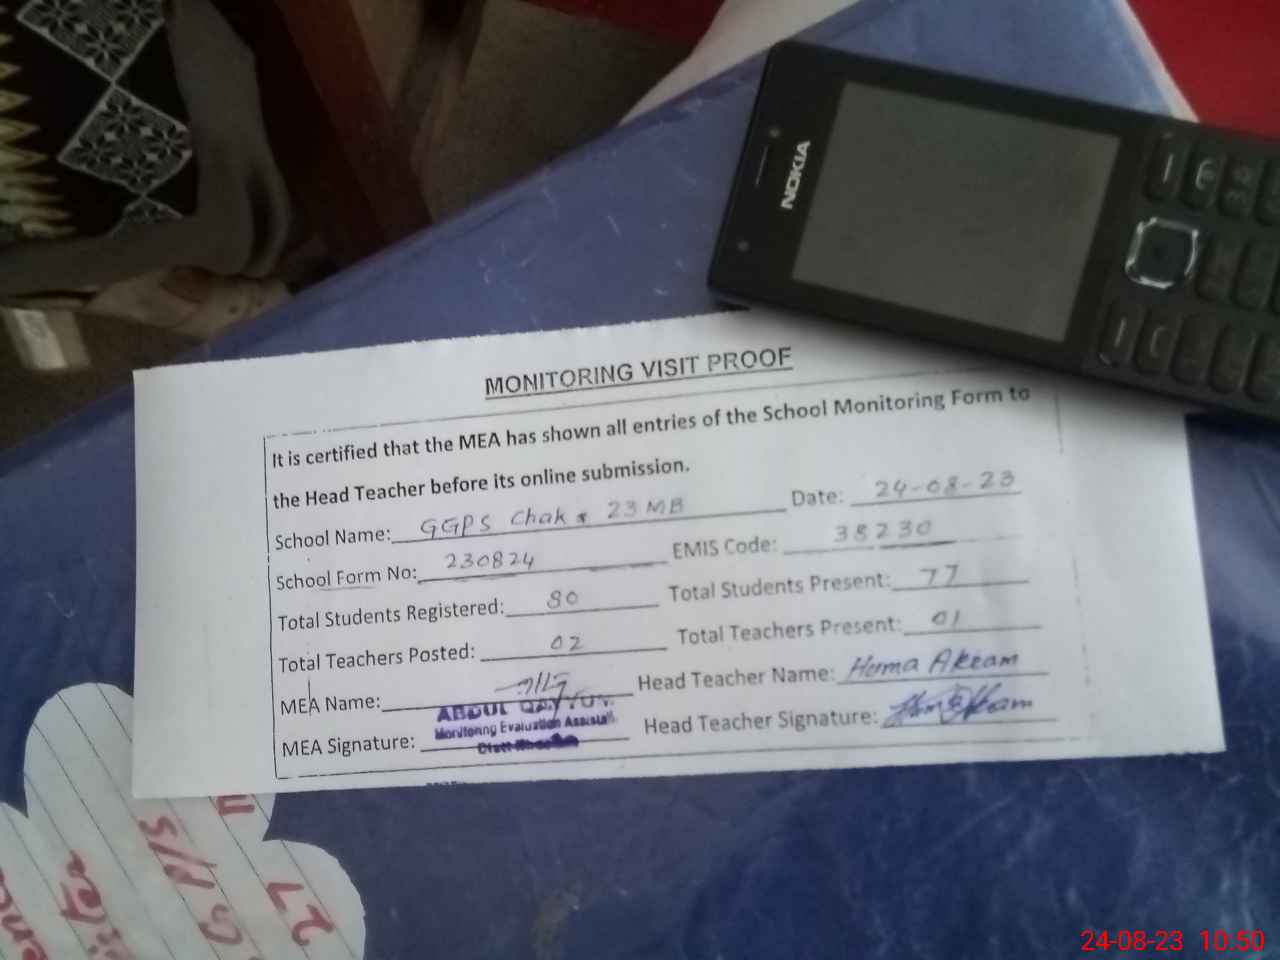 NOKIA
MONITORING VISIT PROOF
It is certified that the MEA has shown all entries of the School Monitoring Form to
the Head Teacher before its online submission.
School Name: GGPS Chak 23 MB Date: 24-08-23
School Form No: 230824 EMIS Code: 38230
Total Students Registered: 80 Total Students Present: 77
Total Teachers Posted: 02 Total Teachers Present: 01
MEA Name: Head Teacher Name: Huma Akram
ABDUL QAYYUM
Monitoring Evaluation Assistant
MEA Signature: Head Teacher Signature:
27
24-08-23 10:50